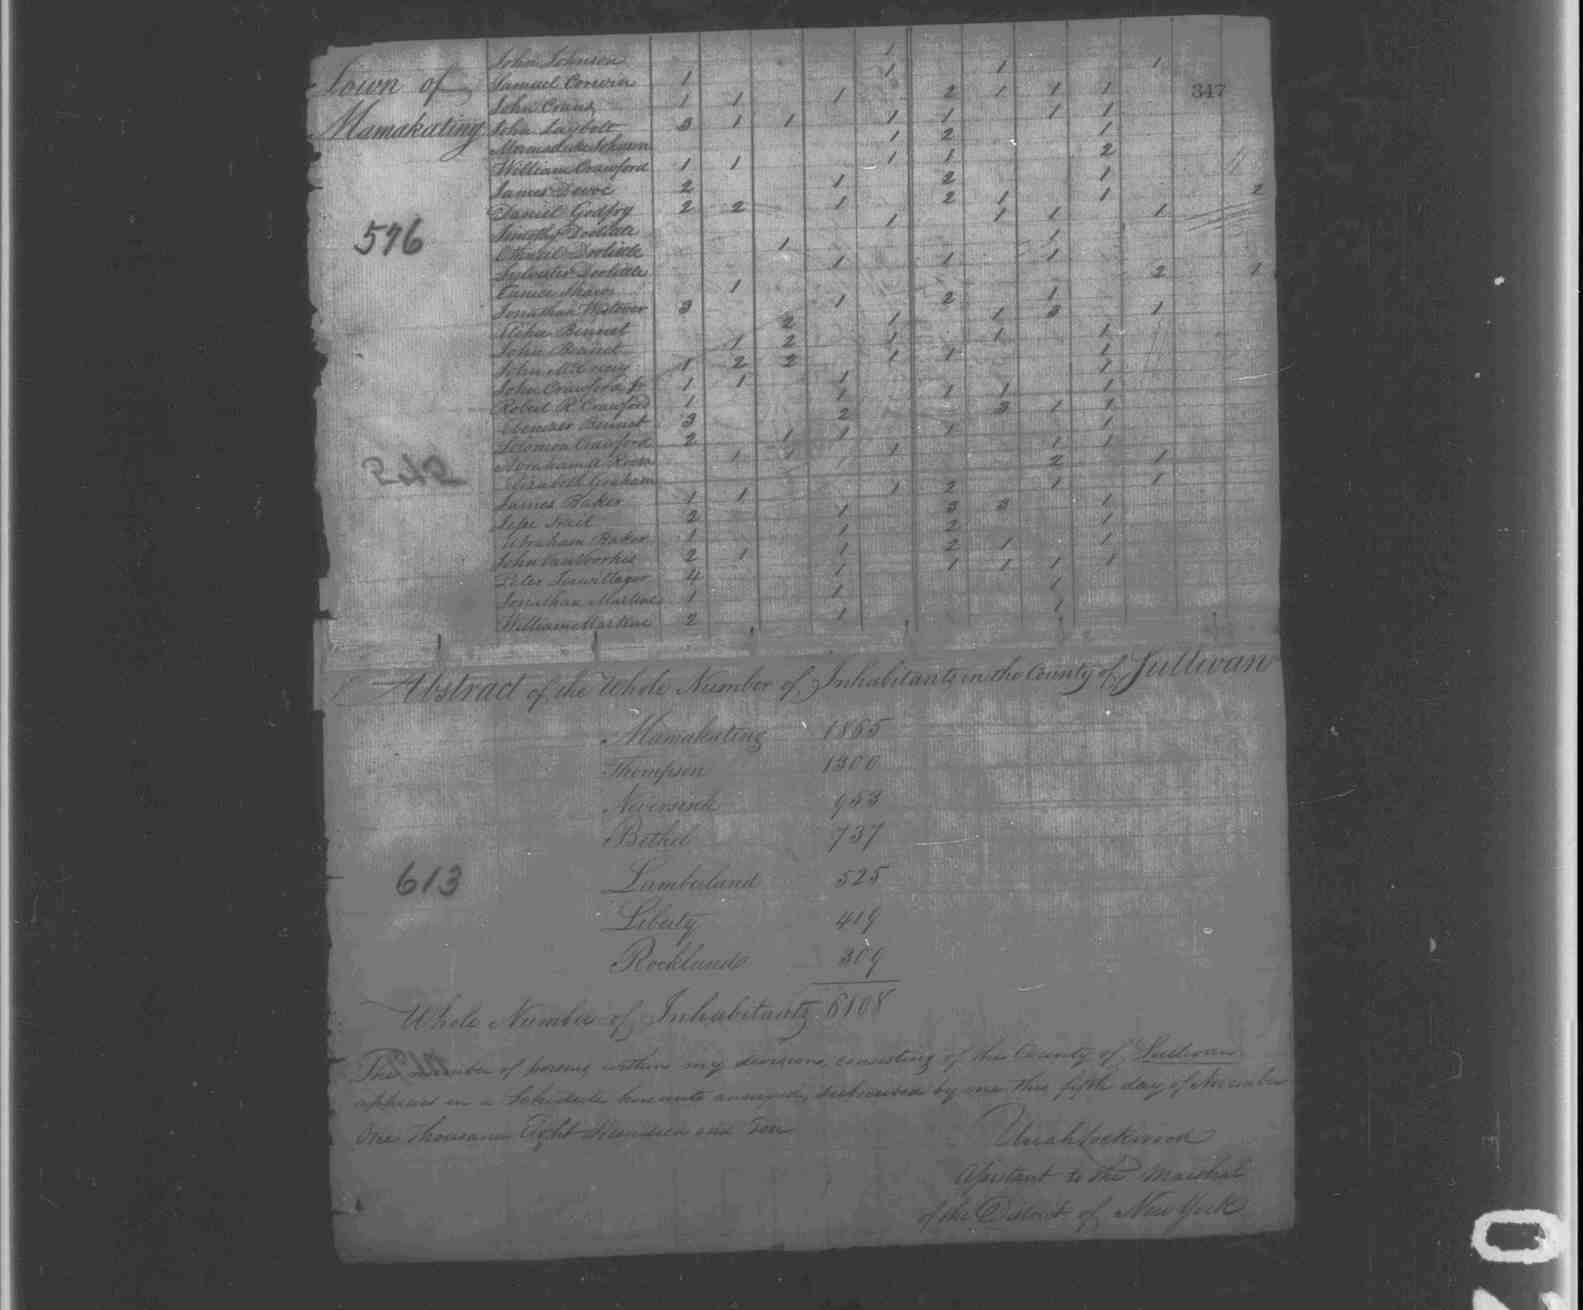 Town of
Mamakating
347
576
242
John Johnson 1 1 1
Samuel Corwin 1 1
John Coun 1 1 1 2 1 1 1
John Laybolt 3 1 1 1 1 1 1
Johnson 1 2 1
William Crawford 1 1 1 1 2
James Devoe 2 1 2 1
Daniel Godfry 2 2 1 2 1 1 2
Timothy Doolittle 1 1 1 1
Doolittle 1 1
Sylvester Doolittle 1 1 1
Eunice Shaw 1 2 1
Jonathan Westover 3 1 2 1
Elisha Bennet 2 1 1 3 1
John Beard 1 2 1 1 1
John 1 2 2 1 1 1
John Crawford Jr 1 1 1 1
Robert R. Crawford 1 1 1 1 1
Ebenezer Bennet 3 2 3 1 1
Solomon Crawford 2 1 1 1 1
Abraham 1 1 1 1 1
Elizabeth Graham 2 1
James Baker 1 1 1 2 1 1
Jesse 2 1 3 3 1
Abraham Baker 1 1 2 1
John Van Voorhis 2 1 1 2 1 1
Peter Terwilleger 4 1 1 1 1 1
Jonathan 1 1 1
William 2 1 1
Abstract of the Whole Number of Inhabitants in the County of Sullivan
Mamakating 1865
Thompson 1300
Neversink 953
Bethel 737
613
Lumberland 525
Liberty 419
Rockland 309
Whole Number of Inhabitants 6108
The Number of persons within my division, consisting of the County of Sullivan
appears in a Schedule hereunto annexed, subscribed by me this fifth day of November
One Thousand Eight Hundred and Ten
Uriah Lockwood
Assistant to the Marshal
of the District of New York